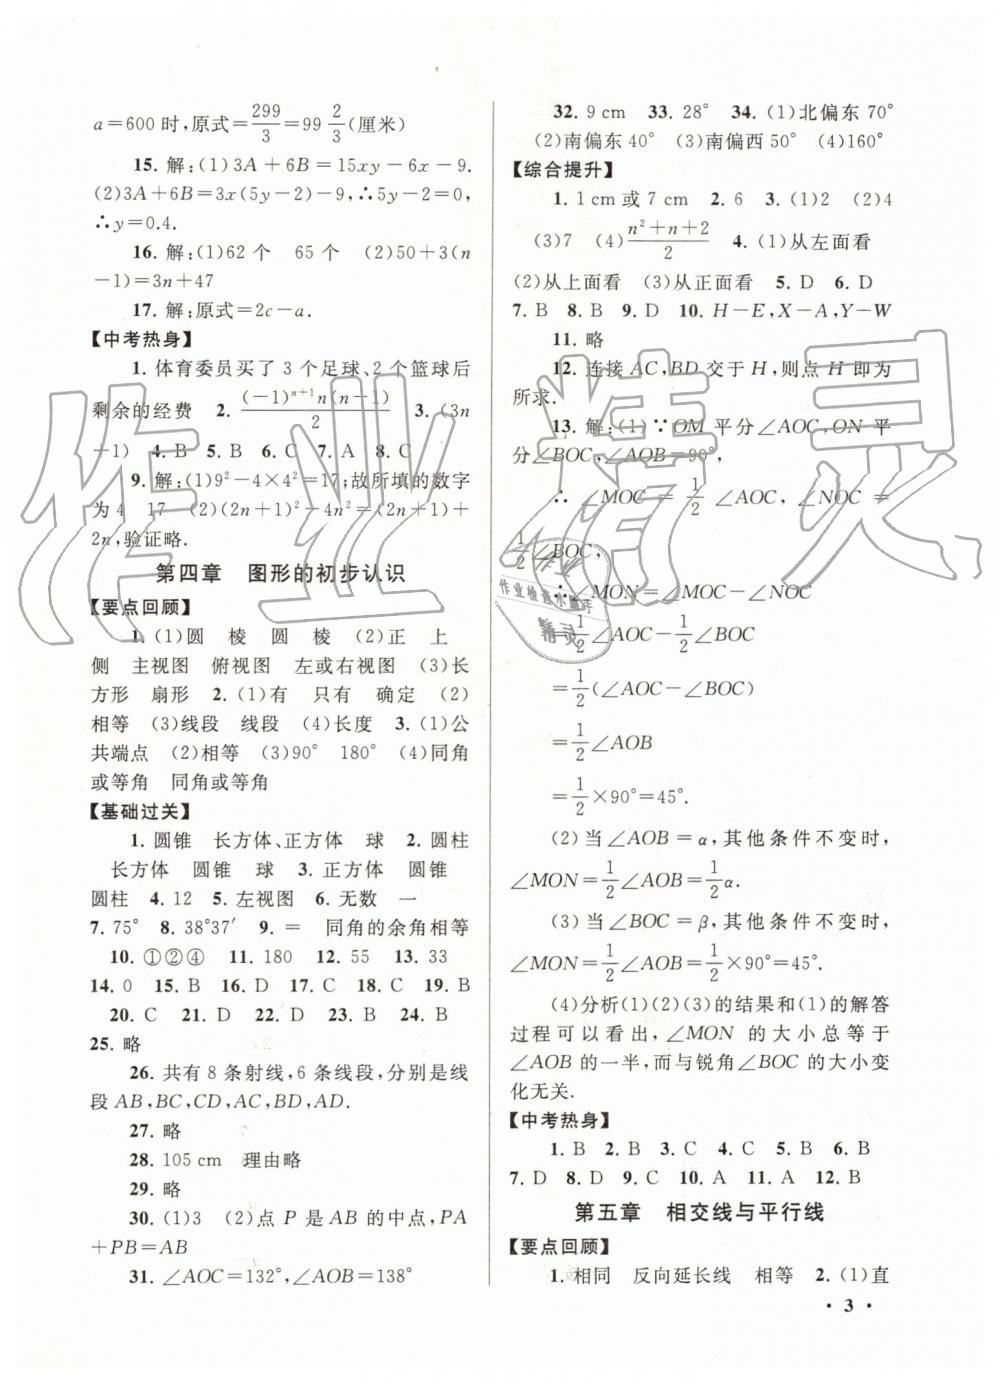 a＝600 时,原式＝299/3＝99 2/3(厘米)
15. 解:(1)3A＋6B＝15xy－6x－9.
(2)3A＋6B＝3x(5y－2)－9,∴5y－2＝0,
∴y＝0.4.
16. 解:(1)62 个　65 个　(2)50＋3(n
－1)＝3n＋47
17. 解:原式＝2c－a.
【中考热身】
1. 体育委员买了 3 个足球、2 个篮球后
剩余的经费　2. (－1)ⁿ⁺¹n(n－1)/2　3. (3n
＋1)　4. B　5. B　6. C　7. A　8. C
9. 解:(1)9²－4×4²＝17;故所填的数字
为 4　17　(2)(2n＋1)²－4n²＝(2n＋1)＋
2n,验证略.
第四章　图形的初步认识
【要点回顾】
1. (1)圆　棱　圆　棱　(2)正　上
侧　主视图　俯视图　左或右视图　(3)长
方形　扇形　2. (1)有　只有　确定　(2)
相等　(3)线段　线段　(4)长度　3. (1)公
共端点　(2)相等　(3)90°　180°　(4)同角
或等角　同角或等角
【基础过关】
1. 圆锥　长方体、正方体　球　2. 圆柱
长方体　圆锥　球　3. 正方体　圆锥
圆柱　4. 12　5. 左视图　6. 无数　一
7. 75°　8. 38°37′　9. ＝　同角的余角相等
10. ①②④　11. 180　12. 55　13. 33
14. 0　15. B　16. D　17. C　18. C　19. B
20. C　21. D　22. D　23. C　24. B
25. 略
26. 共有 8 条射线,6 条线段,分别是线
段 AB,BC,CD,AC,BD,AD.
27. 略
28. 105 cm　理由略
29. 略
30. (1)3　(2)点 P 是 AB 的中点,PA
＋PB＝AB
31. ∠AOC＝132°,∠AOB＝138°
32. 9 cm　33. 28°　34. (1)北偏东 70°
(2)南偏东 40°　(3)南偏西 50°　(4)160°
【综合提升】
1. 1 cm 或 7 cm　2. 6　3. (1)2　(2)4
(3)7　(4)(n²＋n＋2)/2　4. (1)从左面看
(2)从上面看　(3)从正面看　5. D　6. D
7. B　8. B　9. D　10. H－E,X－A,Y－W
11. 略
12. 连接 AC,BD 交于 H,则点 H 即为
所求.
13. 解:(1)∵OM 平分∠AOC,ON 平
分∠BOC,∠AOB＝90°,
∴ ∠MOC ＝ 1/2 ∠AOC, ∠NOC ＝
1/2∠BOC,
∴∠MON＝∠MOC－∠NOC
＝1/2∠AOC－1/2∠BOC
＝1/2(∠AOC－∠BOC)
＝1/2∠AOB
＝1/2×90°＝45°.
(2)当∠AOB＝α,其他条件不变时,
∠MON＝1/2∠AOB＝1/2α.
(3)当∠BOC＝β,其他条件不变时,
∠MON＝1/2∠AOB＝1/2×90°＝45°.
(4)分析(1)(2)(3)的结果和(1)的解答
过程可以看出,∠MON 的大小总等于
∠AOB 的一半,而与锐角∠BOC 的大小变
化无关.
【中考热身】
1. B　2. B　3. C　4. C　5. B　6. B
7. D　8. D　9. C　10. A　11. A　12. B
第五章　相交线与平行线
【要点回顾】
1. 相同　反向延长线　相等　2. (1)直
· 3 ·
作业精灵